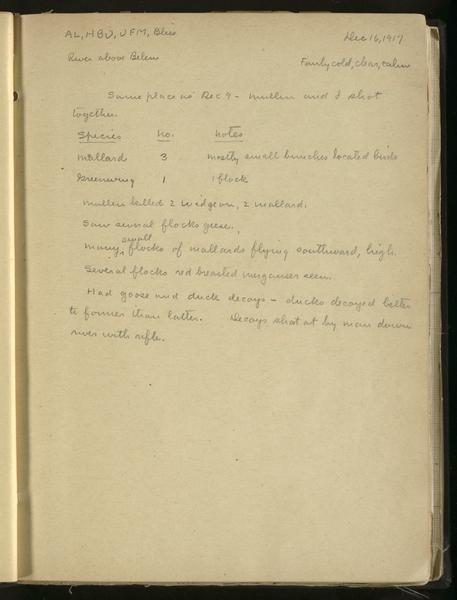 AL, HBJ, JFM, Bliss Dec 16, 1917
River above Belen Fairly cold, clear, calm
Same place as Dec 9 - Mullen and I shot
together.
Species No. Notes
Mallard 3 mostly small bunches located birds
Greenwing 1 1 flock
Mullen killed 2 widgeon, 2 mallard.
Saw several flocks geese.
Many small flocks of mallards flying southward, high.
Several flocks red breasted merganser seen.
Had goose and duck decoys - ducks decoyed better
to former than latter. Decoys shot at by man down
river with rifle.